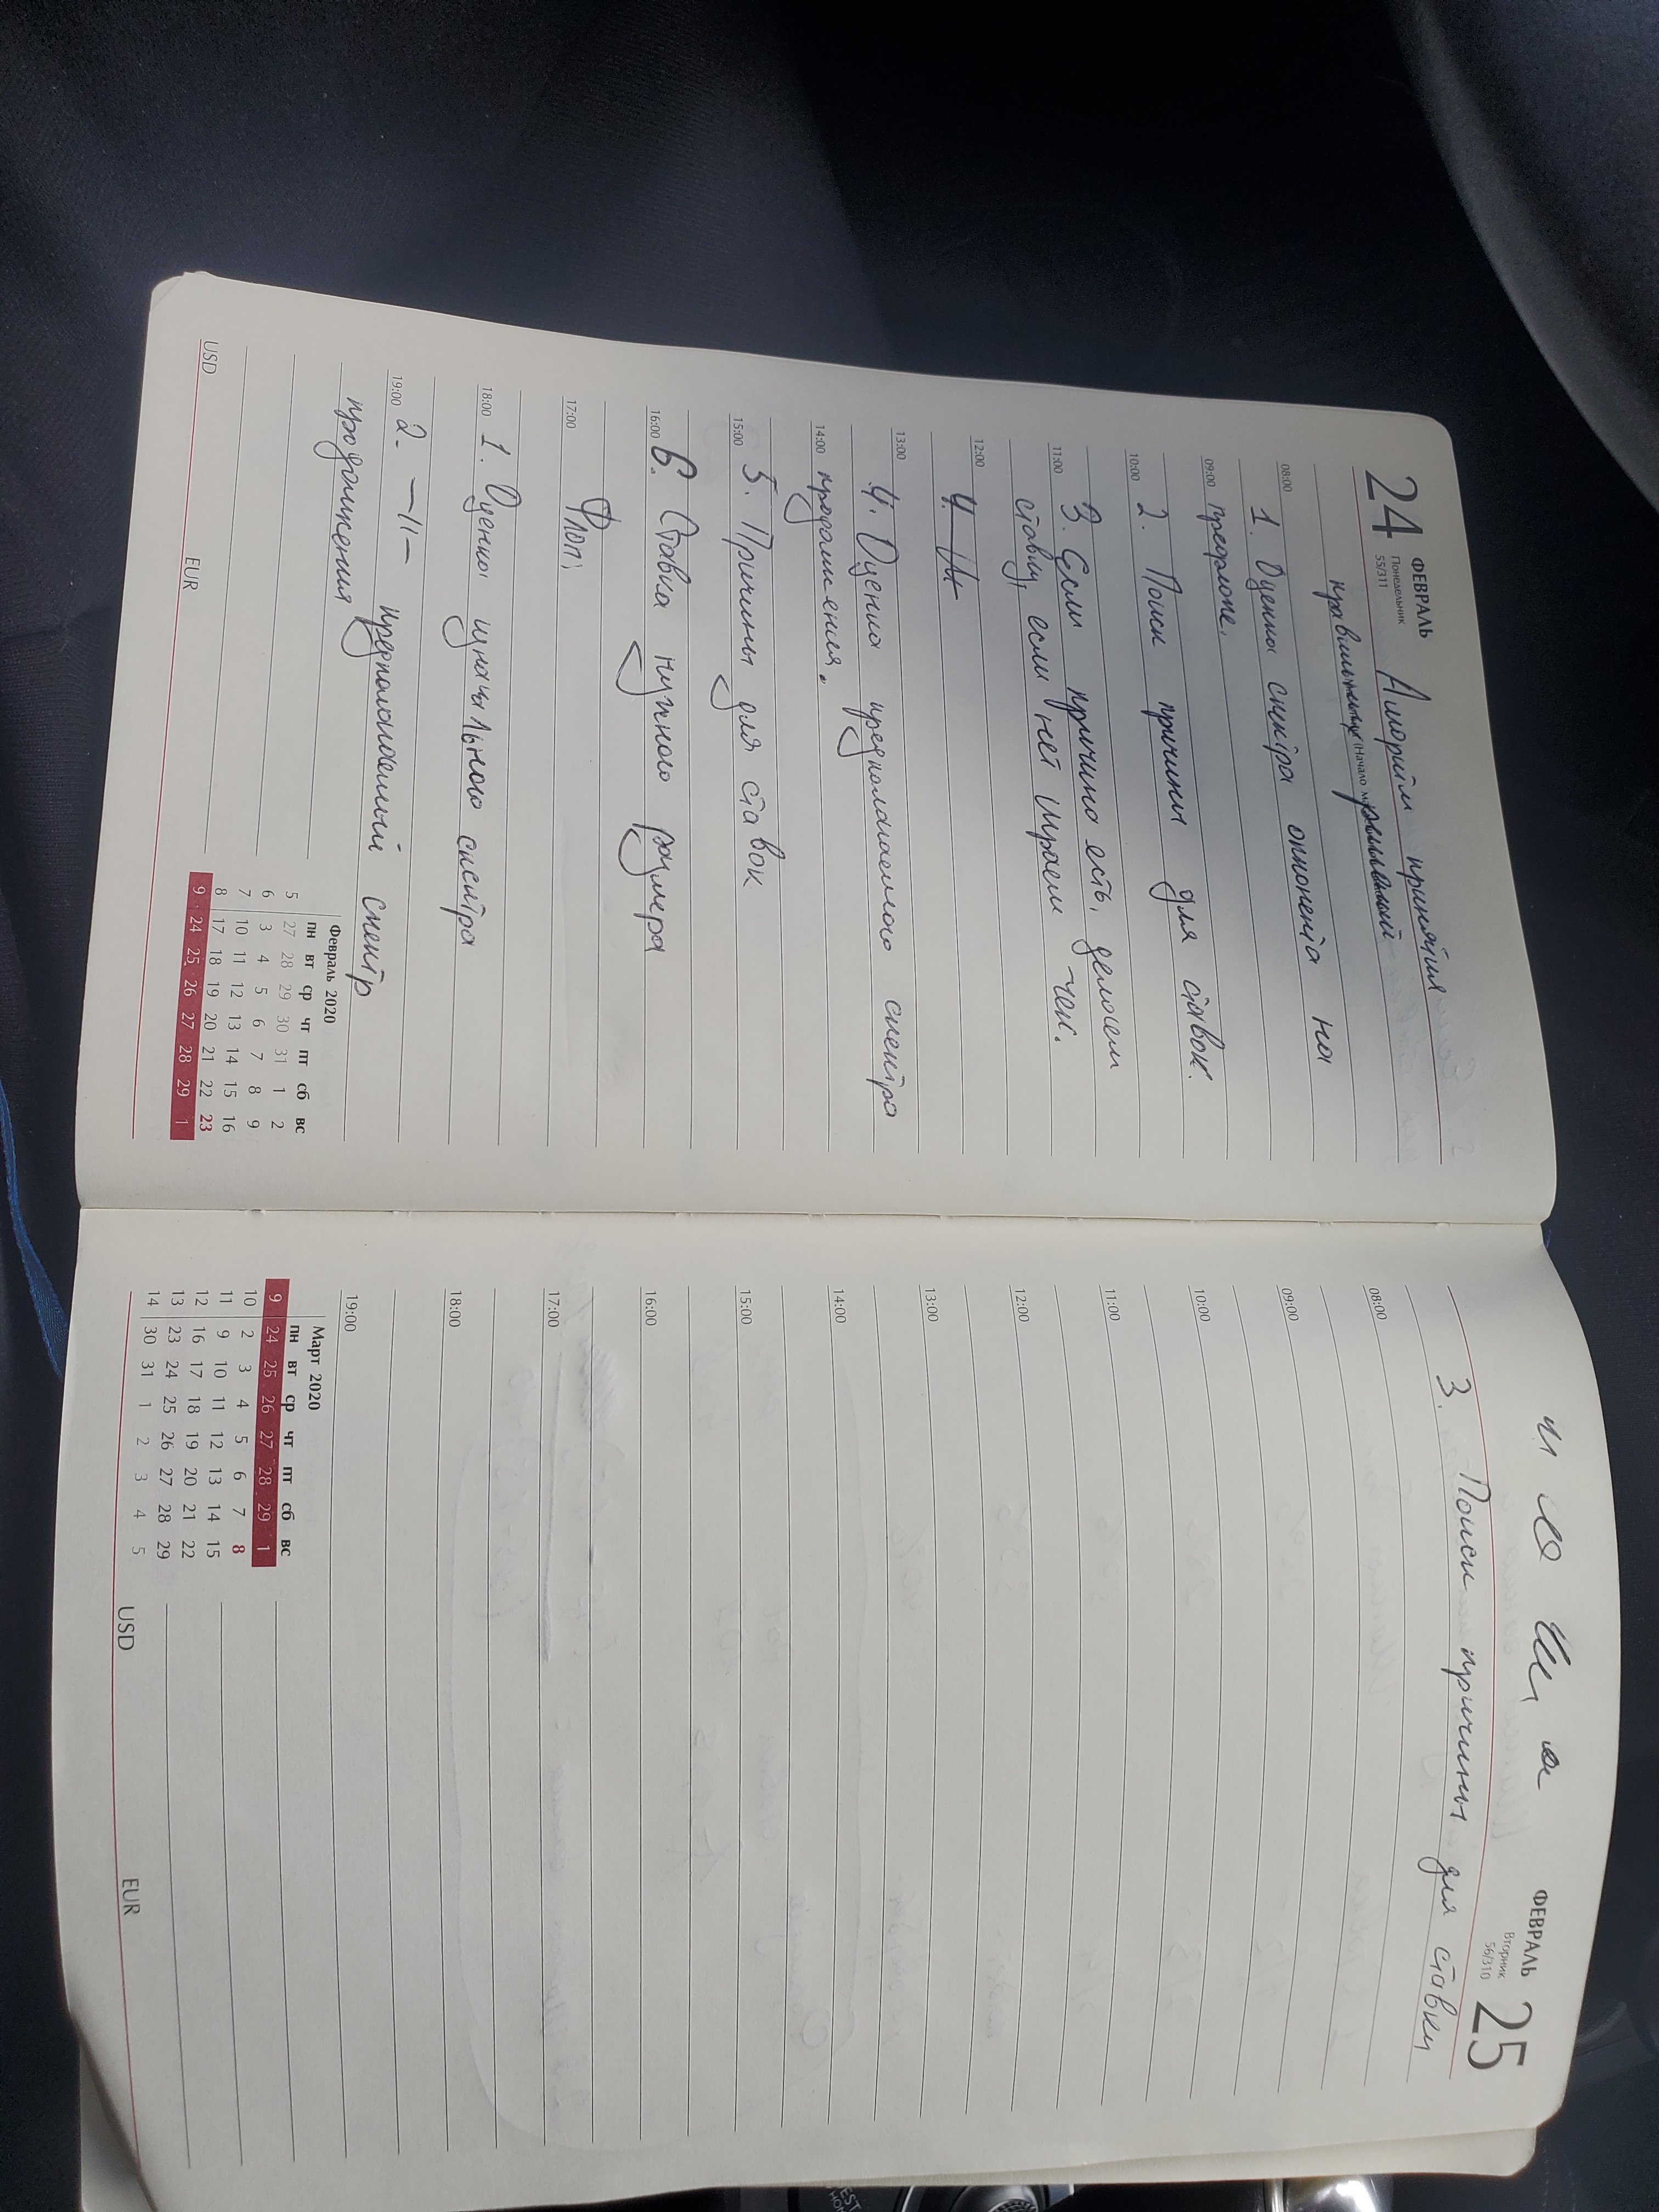 24 ФЕВРАЛЬ
Понедельник
55/311
Алгоритм принятия
правильных решений
(Начало
08:00
1. Оценка спектра оппонента на
09:00 префлопе.
10:00 2. Поиск причины для ставок.
11:00 3. Если причина есть, делаем
ставку, если нет играем чек.
12:00
4.
13:00 4. Оценка предполагаемого спектра
14:00 продолжения.
15:00 5. Причины для ставок
16:00 6. Ставка нужного размера
17:00 Флоп:
18:00 1. Оценка изначального спектра
19:00 2. —||— предполагаемый спектр
продолжения
USD EUR
Февраль 2020
пн вт ср чт пт сб вс
5 27 28 29 30 31 1 2
6 3 4 5 6 7 8 9
7 10 11 12 13 14 15 16
8 17 18 19 20 21 22 23
9 24 25 26 27 28 29 1
ФЕВРАЛЬ 25
Вторник
56/310
3. Поиск причины для ставки
08:00
09:00
10:00
11:00
12:00
13:00
14:00
15:00
16:00
17:00
18:00
19:00
Март 2020
пн вт ср чт пт сб вс
9 24 25 26 27 28 29 1
10 2 3 4 5 6 7 8
11 9 10 11 12 13 14 15
12 16 17 18 19 20 21 22
13 23 24 25 26 27 28 29
14 30 31 1 2 3 4 5
USD EUR